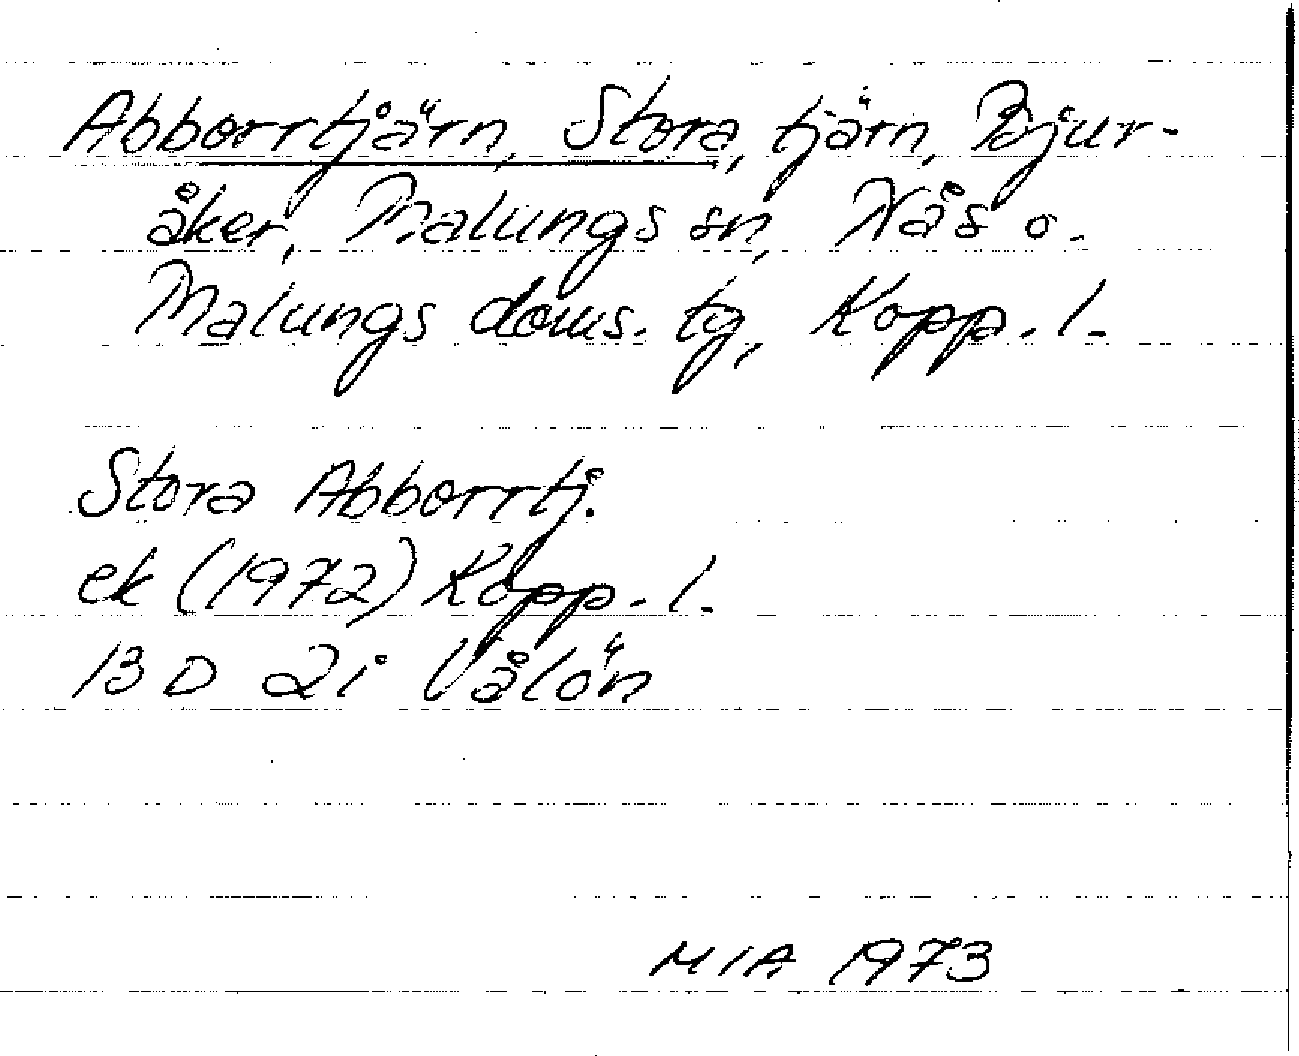 Abborrtjärn, Stora, tjärn, Bjur-
åker, Malungs sn, Nås o.
Malungs doms. tg, Kopp. l.
Stora Abborrtj.
ek (1972) Kopp. l.
13 D 2i Vålön
MIA 1973